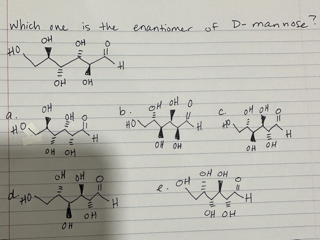 Which one is the enantiomer of D-mannose?
OH OH O
HO H
OH OH
a. OH OH O
HO H
OH OH
b. OH OH O
HO H
OH OH
c. OH OH O
HO H
OH OH
d. OH OH O
HO H
OH OH
e. OH OH OH O
H
OH OH